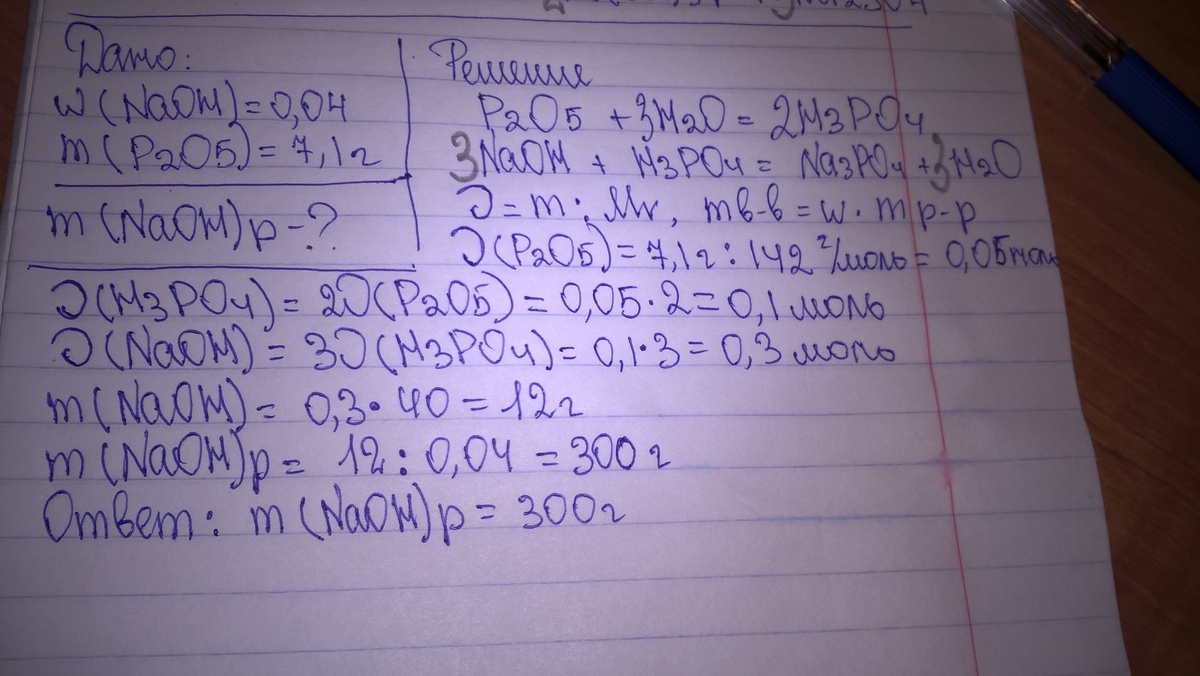 Дано:
w(NaOH)=0,04
m(P2O5)=7,1г
m(NaOH)р-?
Решение
P2O5 +3H2O = 2H3PO4
3NaOH + H3PO4 = Na3PO4 +3H2O
ν=m:Mr, mв-в=w·mр-р
ν(P2O5)=7,1г:142г/моль=0,05моль
ν(H3PO4)=2ν(P2O5)=0,05·2=0,1моль
ν(NaOH)=3ν(H3PO4)=0,1·3=0,3моль
m(NaOH)= 0,3·40=12г
m(NaOH)р= 12:0,04=300г
Ответ: m(NaOH)р=300г